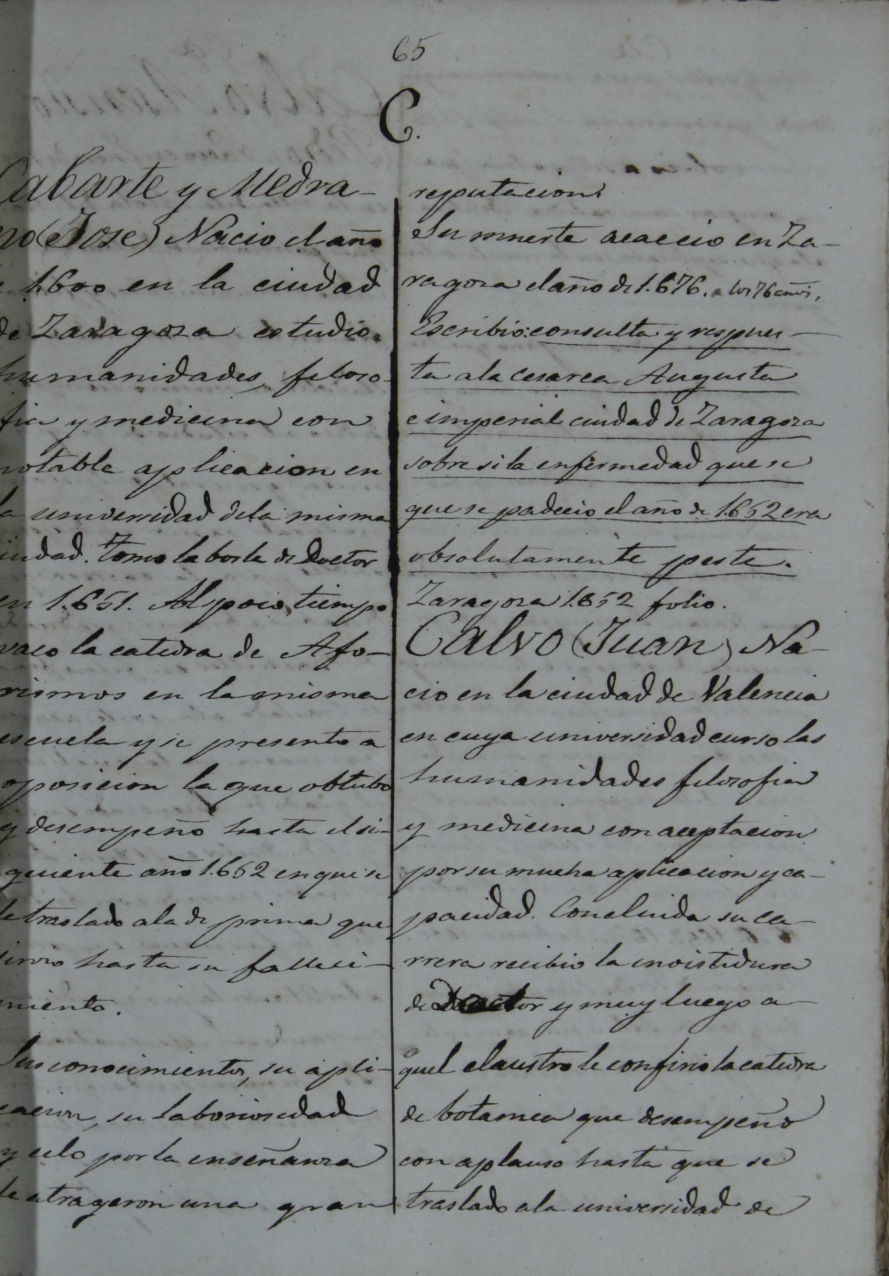 65
C.
Cabarte y Medra-
no (Jose) Nacio el año
1.600 en la ciudad
de Zaragoza estudio
humanidades, filoso-
fia y medicina con
notable aplicacion en
la universidad de la misma
ciudad. Tomo la borla de Doctor
en 1.651. Al poco tiempo
vaco la catedra de Afo-
rismos en la misma
escuela y se presento a
oposicion la que obtubo
y desempeño hasta el si-
guiente año 1.652 en que se
le traslado a la de prima que
sirvio hasta su falleci-
miento.
Sus conocimientos, su apli-
cacion, su laboriosidad
y celo por la enseñanza
le atrageron una gran
reputacion.
Su muerte acaecio en Za-
ragoza el año de 1.676. a los 76 años.
Escribio: consulta y respues-
ta a la cesarea Augusta
e imperial ciudad de Zaragoza
sobre si la enfermedad que se
que se padecio el año de 1.652 era
absolutamente peste.
Zaragoza 1.652 folio.
Calvo (Juan) Na-
cio en la ciudad de Valencia
en cuya universidad curso las
humanidades filosofia
y medicina con aceptacion
por su mucha aplicacion y ca-
pacidad. Concluida su ca-
rrera recibio la
de Doctor y muy luego a-
quel claustro le confirio la catedra
de botanica que desempeño
con aplauso hasta que se
traslado a la universidad de